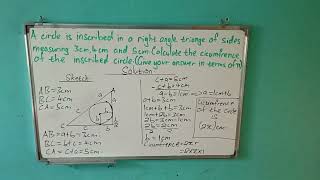 A circle is inscribed in a right angle triange of sides
measuring 3cm, 4cm and 5cm. Calculate the cicumfrence
of the inscribed circle. (Give your answer in terms of π)
Sketch
Solution
AB=3cm
BC=4cm
CA=5cm
AB=a+b=3cm
BC=b+c=4cm
CA=C+a=5cm
c+a=5cm
c+b=4cm
a-b=1cm => a=1cm+b
a+b=3cm
1cm+b+b=3cm
1cm+2b=3cm
2b=3cm-1cm
2b=2cm
2 2
b=1cm
Circumfrence=2πr
=2×π×1
Cicumfrence
of the inscribed
circle
is
(2π)cm